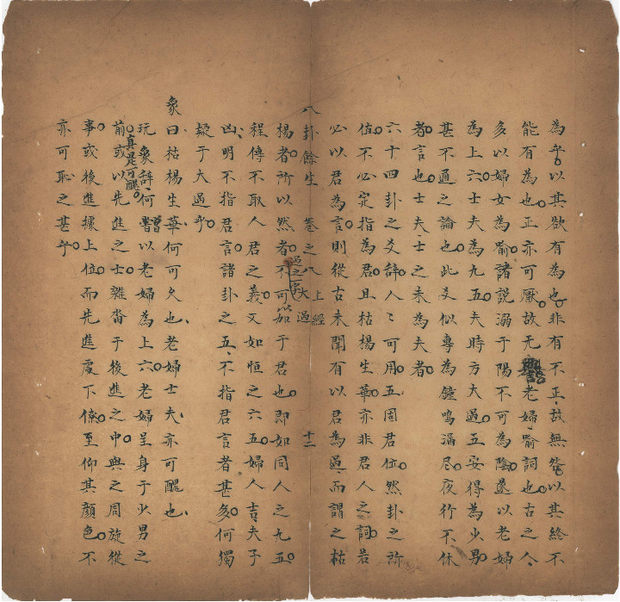 為乎以其欲有為也非有不正故無咎以其終不
能有為也正亦可厭故无老婦喻詞也古之人
多以婦女為喻諸說溺于陽不可為陰遂以老婦
為上六士夫為九五夫時方大過五安得為少男
甚不通之論也此爻似專為鐘鳴漏尽夜行不休
者言也士夫士之未為夫者
六十四卦之爻辞人人可用五固君位然卦之
值不必定指為君且枯楊生華亦非君人之詞若
必以君為言則從古未聞有以君為過而謂之枯
八卦餘生 卷之八 上經 大過 十二
楊者所以然者過之名不可以加于君也即如同人之九五
程傳不取人君之義又如恒之六五婦人吉夫子
凶明不指君言諸卦之五不指君言者甚多何獨
疑于大過乎
象曰枯楊生華何可久也老婦士夫亦可醜也
玩象辞何嘗以老婦為上六老婦呈身于少男之
前真是可醜或以先進之士雜沓于後進之中與之周旋從
事或後進據上位而先進處下僚至仰其顏色不
亦可恥之甚乎